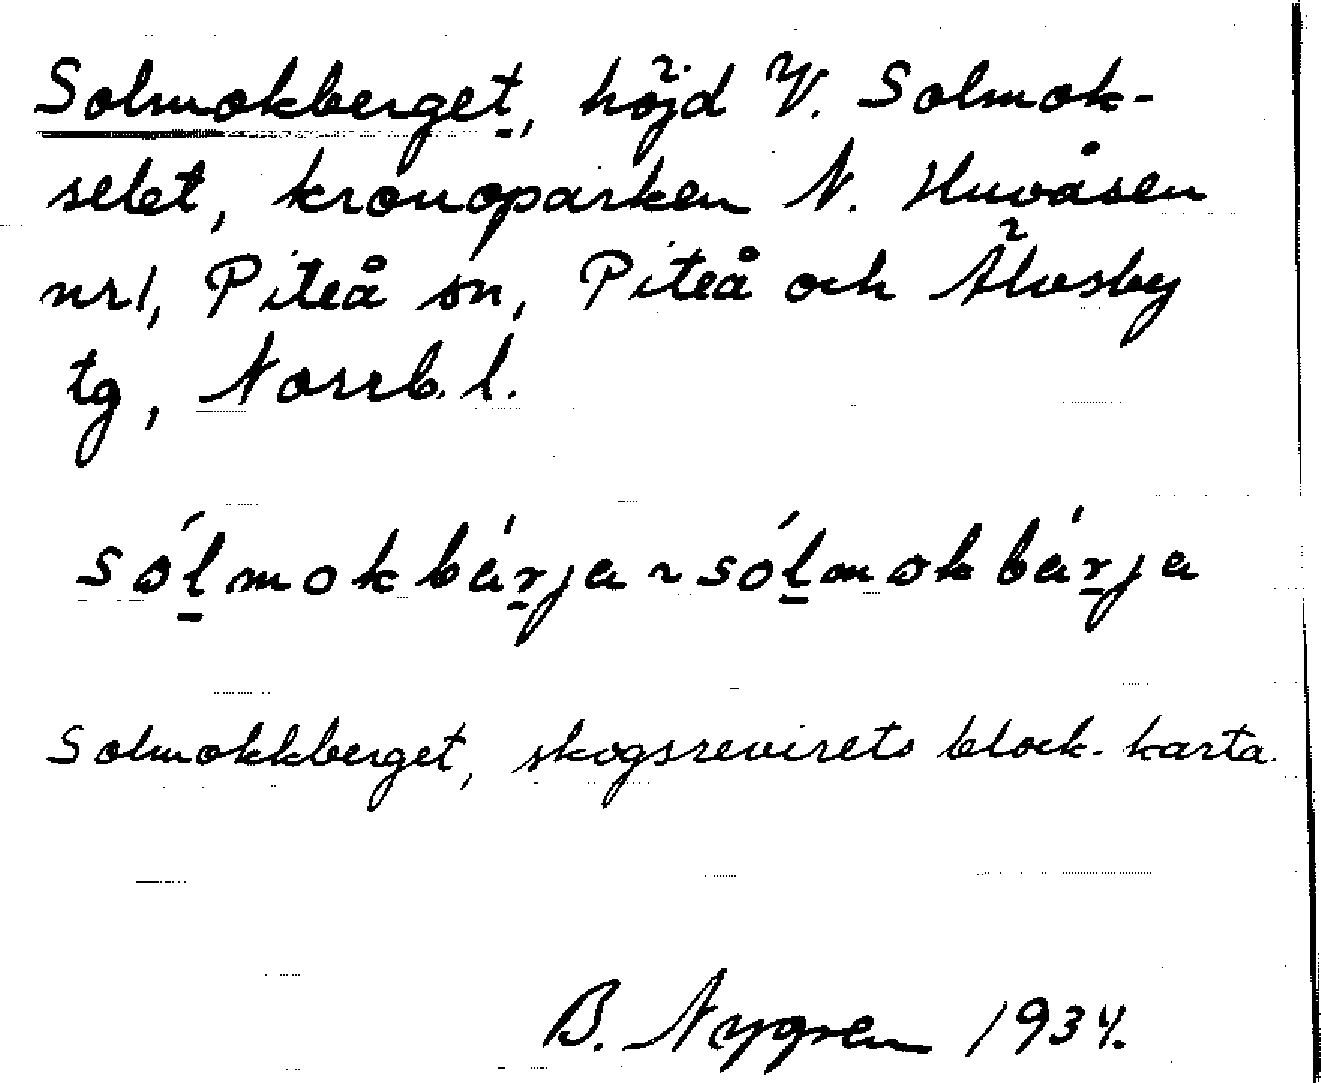 Solmokberget, höjd V. Solmok-
selet, kronoparken N. Huvåsen
nr 1, Piteå sn, Piteå och Älvsby
tg, Norrb. l.
sól̲mokbár̲ja ~ sól̲mokbár̲ja
Solmokkberget, skogsrevirets block-karta.
B. Nygren 1934.